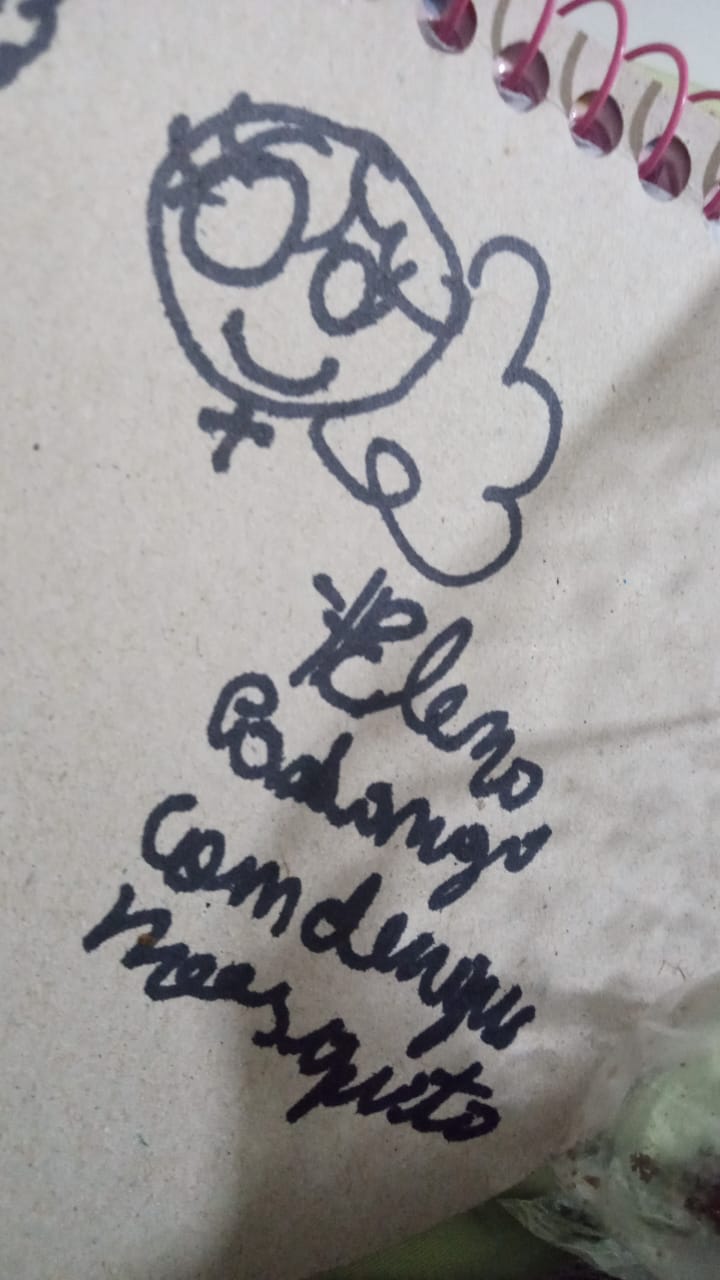 Eleno
Padongo
Com dengue
mosquito